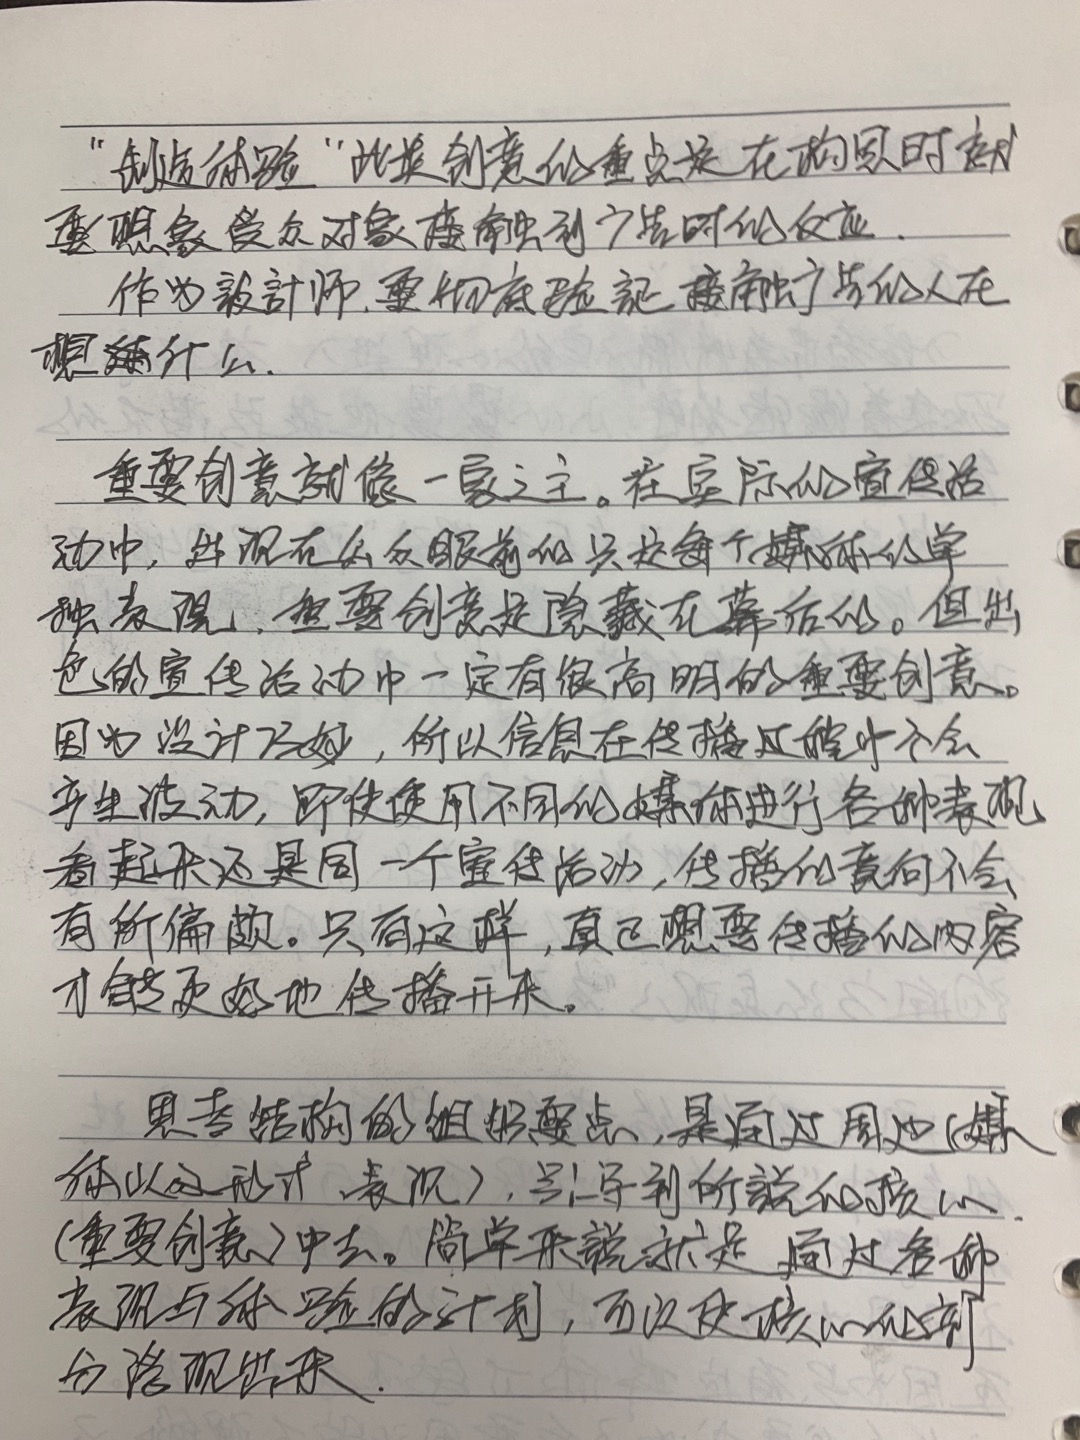 "制造体验"此类创意的重点是在构思时就
要想象受众对象接触到广告时的反应.
作为設計师.要彻底验証接触广告的人在
想 什么.
重要创意就像一家之主。在实际的宣传活
动中,出现在公众眼前的只是每个媒体的单
独表现,重要创意是隐藏在幕后的。但出
色的宣传活动中一定有很高明的重要创意。
因为设计巧妙,所以信息在传播过程中不会
产生波动,即使使用不同的媒体进行各种表现
看起来还是同一个宣传活动,传播的意向不会
有所偏颇。只有这样,真正想要传播的内容
才能更好地传播开来。
思考结构的组织要点,是通过周边(媒
体以及形式 表现),引导到所說的核心.
(重要创意)中去。简单来說就是通过各种
表现与体验的计划,可以使核心的部
分隐现出来.